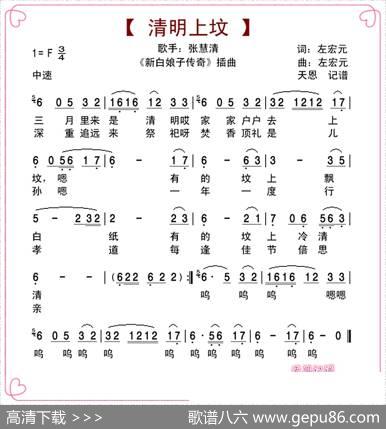 【 清明上坟 】
1=F 3/4
歌手：张慧清
词：左宏元
《新白娘子传奇》插曲
曲：左宏元
中速
天恩 记谱
6 0 5 3 2 | 1 6 1 6 1 2 3 3 | 0 5 3 2 1 2 1 2 | 1 7
三 月里来是 清明哎 家 家户户去 上
深 重追远来 祭 祀呀 焚 香顶礼是 儿
6 0 5 6 5 | 1 2 - - | 3 3 0 2 3 | 1 7 6 1 2 3
坟，嗯 有 的 坟上 飘
孙嗯 一 年 一 度 行
5 - 2 3 2 | 3 - - | 6 6 0 2 | 2 1 7 | 0 5 6 3 5
白 纸 有 的 坟上 冷清
孝 道 每 逢 佳节 倍思
6 - - | (6 2 2 6 2 2 | 6 2 2 6) | 6 · 5 3 2 | 1 6 1 6 1 2 3 3
清 呜 呜 呜 呜 嗯嗯
亲
0 5 3 2 | 1 2 1 2 1 7 | 6 · 5 6 5 | 1 7 - | 6 - - | 6 - 0
呜 呜 呜 呜 呜 呜 呜
高清下载 >>>
歌谱八六 www.gepu86.com